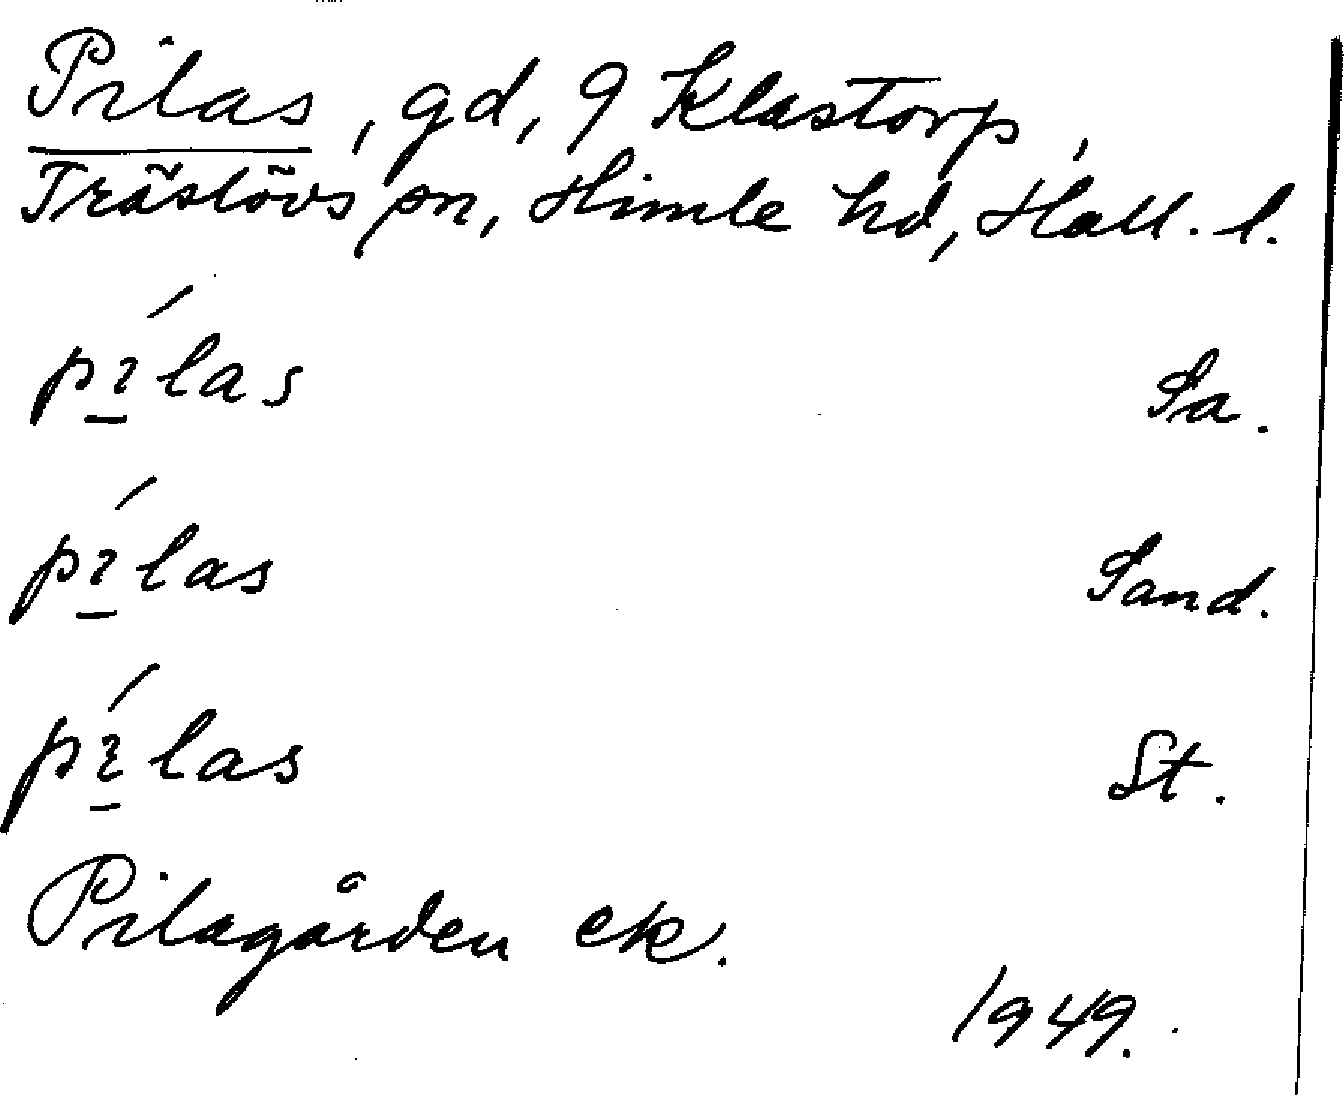 Pilas, gd, 9 Klastorp,
Träslövs sn, Himle hd, Hall. l.
pı̱́las Sa.
pı̱́las Sand.
pı̱́las St.
Pilagården ek.
1949.